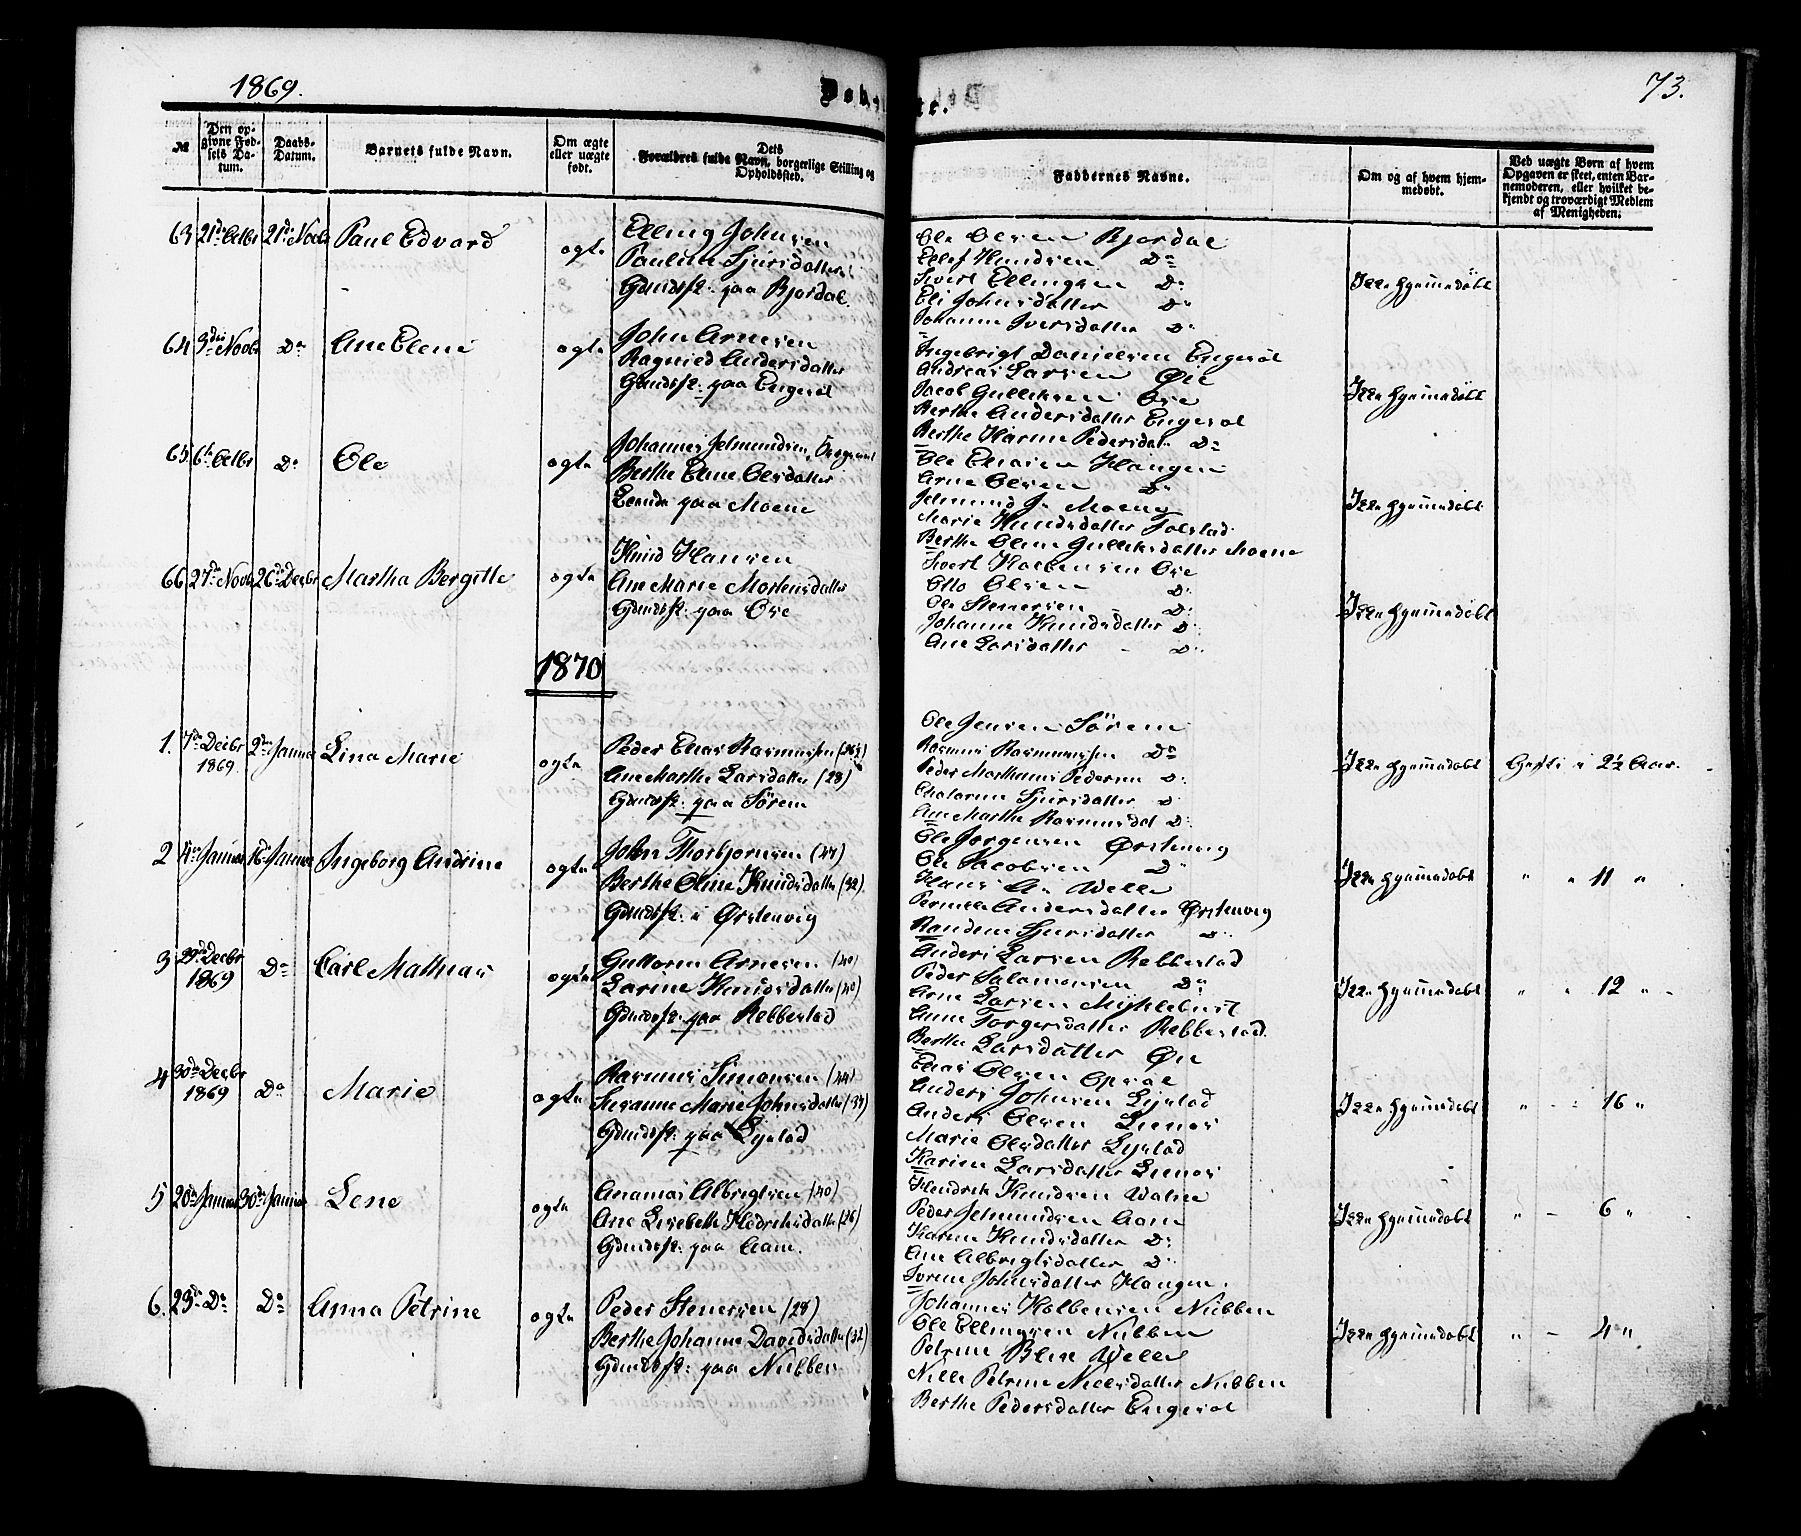 1869.
73.
№
Den opgivne Fødsels Datum.
Daabs-Datum.
Barnets fulde Navn.
Om ægte eller uægte født.
Dets Forældres fulde Navn, borgerlige Stilling og Opholdssted.
Faddernes Navne.
Om og af hvem hjemmedøbt.
Ved uægte Børn af hvem Opgaven er skeet, enten Barnemoderen, eller hvilket bekjendt og troværdigt Medlem af Menigheden.
63 21de Octbr 21de Novbr Paul Edvard ægte
Elling Johnsen
Pauline Sjursdatter
Gdmdsf: paa Bjørdal.
Ole Olsen Bjørdal
Ellef Knudsen Do
Sivert Ellingsen Do
Eli Johnsdatter Do
Johanne Iversdatter Do
Ikke hjemmedøbt
64 3die Novbr Do Ane Elene ægte
John Arnesen
Ragnied Andersdatter
Gdmdsf: paa Engesæt
Ingebrigt Danielsen Engesæt
Andreas Larsen Øie
Jacob Gulliksen Øie
Berthe Andersdatter Engesæt
Berthe Karine Pedersdat: Do
Ikke hjemmedøbt
65 6te Octbr Do Ole ægte
Johannes Jetmundsen,
Berthe Elene Olsdatter
paa Moene
Ole Eliasen Hougen
Arne Olsen Do
Jetmund J. Moene
Marie Knudsdatter Folstad
Berthe Oline Gulliksdatter Moene
Ikke hjemmedøbt
66 27de Novbr 26de Decbr Martha Bergitte ægte
Knud Hansen
Ane Marie Mortensdatter
Gdmdsf: paa Øie
Sivert Hansen Øie
Otto Olsen Do
Ole Stenersen Do
Johanne Knudsdatter Do
Ane Larsdatter - Do
Ikke hjemmedøbt
1870
1. 7de Decbr 1869. 2den Januar Lina Marie ægte
Peder Elias Rasmussen
Ane Marthe Larsdatter (28)
Gdmdsf: paa Sørem
Ole Jensen Sørem
Rasmus Rasmussen Do
Peder Mathias Pedersen Do
Chatarine Sjursdatter Do
Ane Marthe Rasmusdat Do
Ikke hjemmedøbt
Gifte i 2½ Aar.
2 4de Januar 16de Januar Ingeborg Andrine ægte
John Thorbjørnsen (47)
Berthe Oline Knudsdatter (32).
Gdmdsf: i Ørstenvig
Ole Jørgensen Ørstenvig
Ole Jacobsen Do
Hans A. Welle
Pernille Andersdatter Ørstenvig
Randine Sjursdatter Do
Ikke hjemmedøbt
" " 11 "
3 29de Decbr 1869 Do Carl Mathias ægte
Guttorm Arnesen (40)
Larine Knudsdatter (40)
Gdmdsf: paa Rebbestad
Anders Larsen Rebbestad
Peder Salamonsen Do
Arne Larsen Myklebust
Anne Torgersdatter Rebbestad.
Berthe Larsdatter Øie
Ikke hjemmedøbt
" " 12 "
4 30de Decbr 1869 Do Marie ægte
Rasmus Simonsen (44)
Susanne Marie Johnsdatter
Gdmdsf: paa Lystad
Elias Olsen Opsal
Anders Johnsen Lystad
Anders Olsen
Marie Olsdatter Lystad
Karen Larsdatter
Ikke hjemmedøbt
" - " 16 "
5 20de Januar 30de Januar Lene ægte
Ananias Albrigtsen (40)
Ane Lisebeth Hendriksdatter (26)
Gdmdsf: paa Aam.
Hendrik Knudsen Watne
Peder Jetmundsen Aam
Karen Knudsdatter Do
Ane Albrigtsdatter Do
Sorene Johnsdatter Hougen.
Ikke hjemmedøbt
" - 6 "
6. 23de Do Do Anna Petrine ægte
Peder Stenersen (28)
Berthe Johanne Davidsdatter (32)
Gdmdsf: paa Nubben
Johannes Kolbensen Nubben
Ole Ellingsen Nubben
Petrine Welle
Nille Petrine Nielsdatter Nubben
Berthe Pedersdatter Engesæt
Ikke hjemmedøbt
" - 4 "